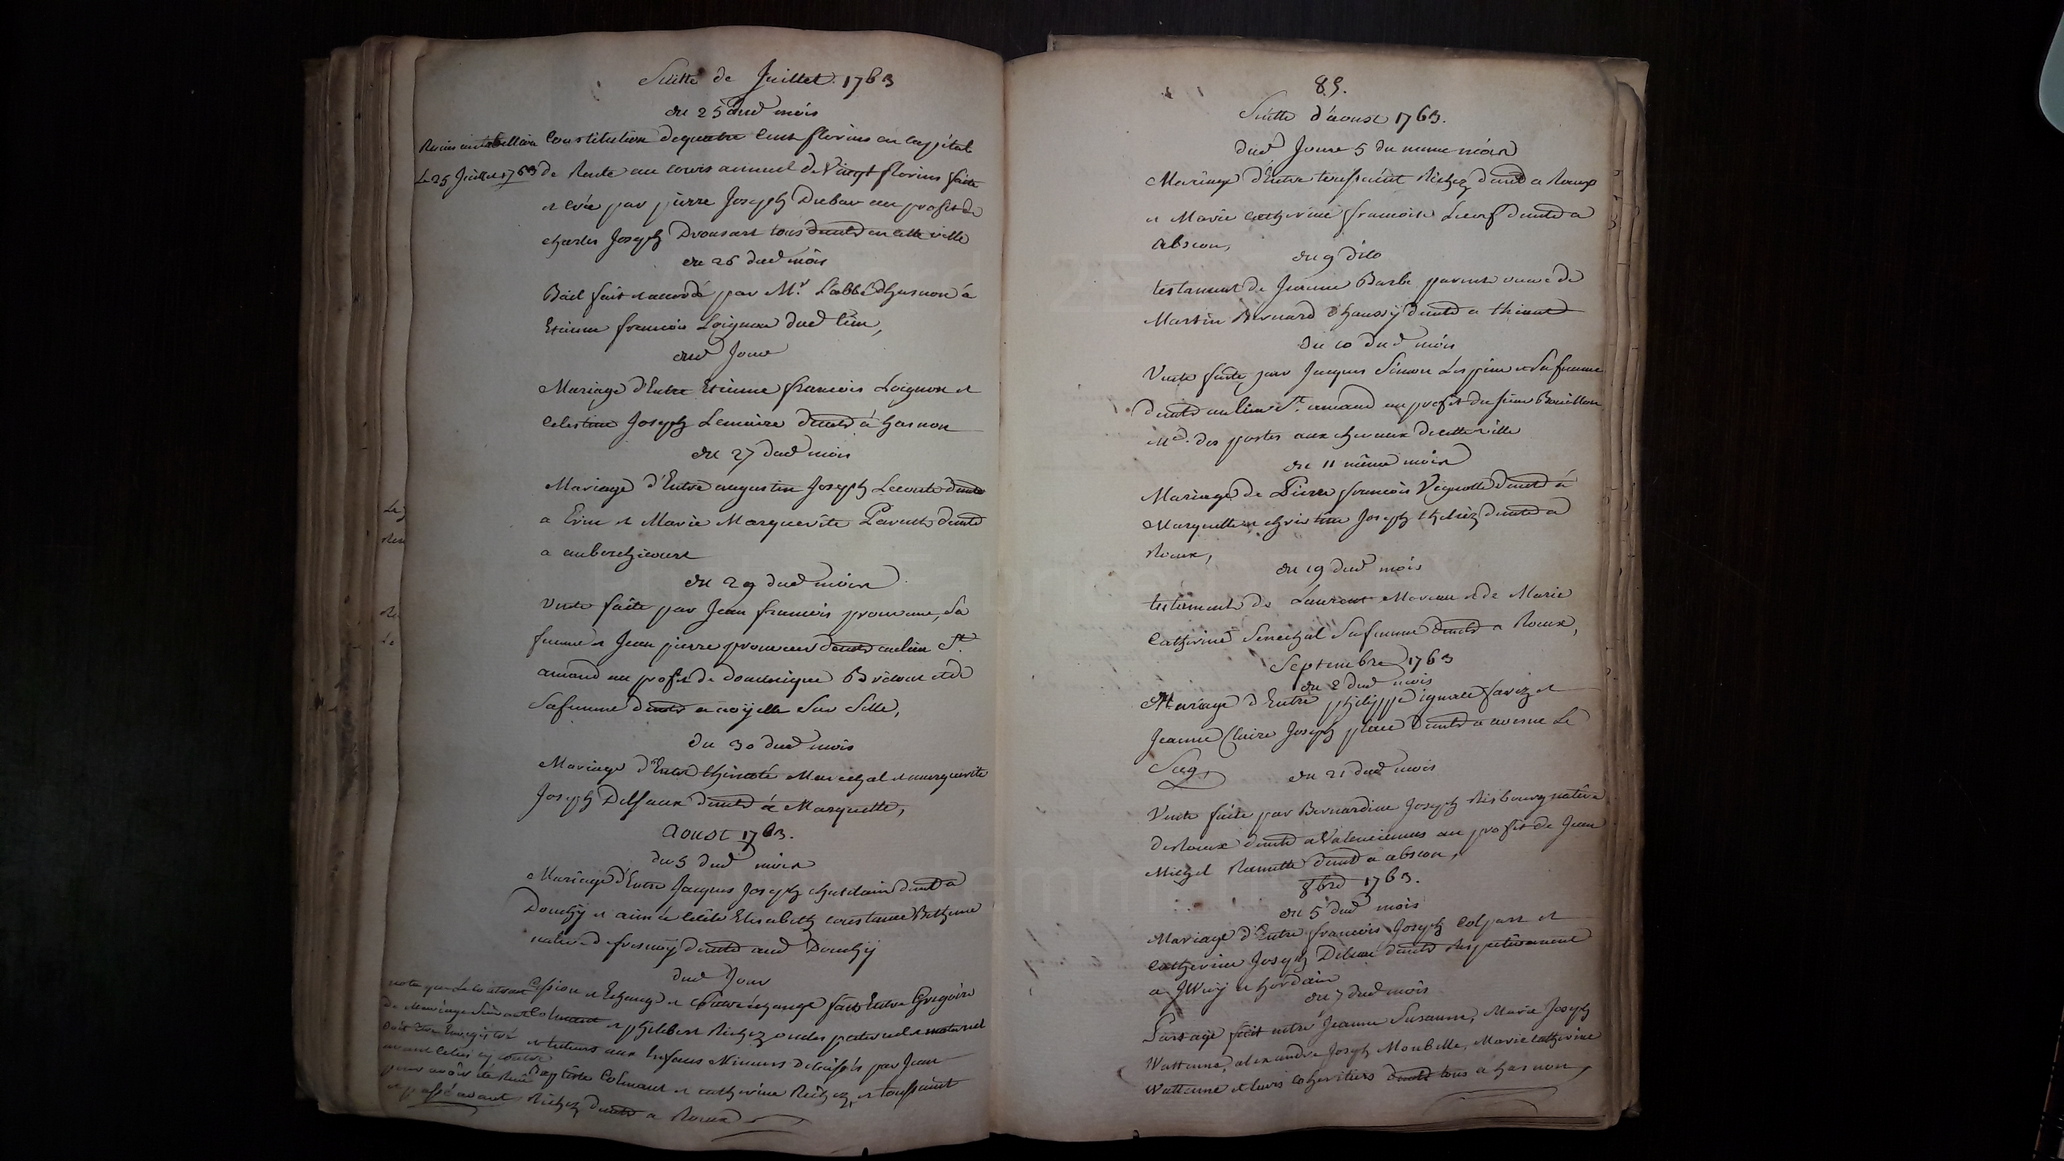 Suitte de Juillet 1763
du 25 dud mois
Constitution de quatre Cent florins en Capital
Le 25 Juillet 1763
de Rente au cours annuel de Vingt florins faite
et créé par pierre Joseph Dubar au profit de
charles Joseph Drousart tous dmts en cette ville
du 26 dud mois
Bail fait et accordé par Mr. L'abbé d'hasnon à
Etienne francois Loignon dud lieu,
dud Jour
Mariage d'Entre Etienne francois Loignon et
Celestine Joseph Lemaire dmts à hasnon
du 27 dud mois
Mariage d'Entre augustin Joseph Lecomte dmt
a Erin et Marie Marguerite Parent dmt
a auberchicourt
du 29 dud mois
Vente faite par Jean francois prouveur, sa
femme et Jean pierre prouveur dmts au lieu St.
amand au profit de dominique et de
sa femme dmts a noyelle sur selle,
du 30 dud mois
Mariage d'Entre thimoté Marechal et marguerite
Joseph Delsaux dmts à Marquette,
aoust 1763.
du 5 dud mois
Mariage d'Entre Jacques Joseph chastelain dmt a
Douchy et aimée Cécile Elisabeth constance Bethune
native de fresnoy dmts aud Douchy
dud Jour
Cession et Echange et Contre échange fait Entre Gregoire
Colmant et philibert Richez oncles paternel et maternel
et tuteurs aux Enfans Mineurs Delaissés par Jean
Baptiste Colmant et catherine Richez, et toussaint
Richez dmts a Roeux
note que le contrat
de mariage
doit être Enregistré
avant celui cy contre
pour avoir été
et passé avant
85.
Suitte d'aoust 1763.
dud Jour 5 du meme mois
Mariage d'Entre toussaint Richez dmt a Roeux
et Marie catherine francoise Lecerf dmte a
abscon,
du 9 dito
testament de Jeanne Barbe parent veuve de
Martin Bernard d'haussy dmte a thiant
du 10 dud mois
Vente faite par Jacques Simon Lespine et sa femme
dmts au lieu St. amand au profit du sieur Bouillon
Me. des postes aux chevaux de cette ville
du 11 même mois
Mariage de Pierre francois Vignolle dmt à
Marquette et christine Joseph dmte a
Roeux,
du 19 dud mois
testament de Laurent Moreau et de Marie
Catherine Senechal sa femme dmts a Roeux,
Septembre 1763
du 2 dud mois
Mariage d'Entre philippe ignace favez et
Jeanne Claire Joseph place dmts a avesne Le
Secq,
du 21 dud mois
Vente faite par Bernardine Joseph Risbourg native
de Roeux dmte a Valenciennes au profit de Jean
Michel Ramette dmt a abscon,
8bre 1763.
du 5 dud mois
Mariage d'Entre francois Joseph Colpart et
Catherine Joseph Delsau dmts respectivement
a Iwuy et hordain
du 7 dud mois
Partage fait entre Jeanne Susanne, Marie Joseph
Wattenne, alexandre Joseph Monbelle, Marie catherine
Wattenne et leurs coheritiers dmts tous a hasnon,